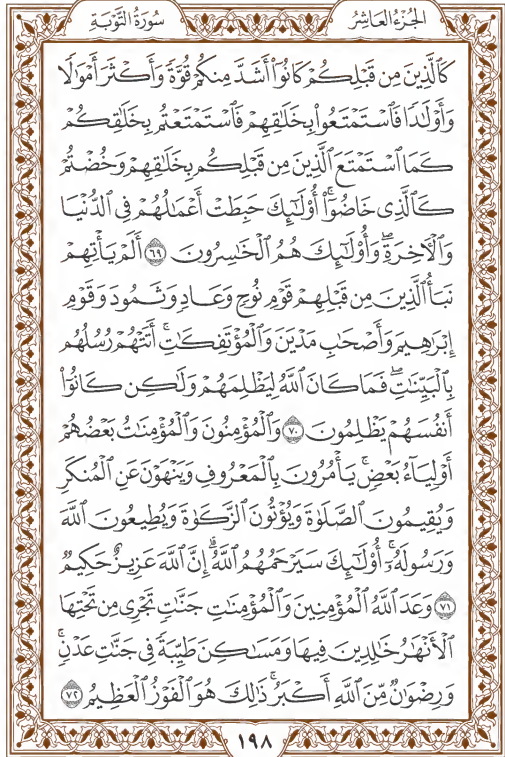 الجُزْءُ العَاشِرُ
سُورَةُ التَّوْبَةِ
كَٱلَّذِينَ مِن قَبْلِكُمْ كَانُوٓا۟ أَشَدَّ مِنكُمْ قُوَّةً وَأَكْثَرَ أَمْوَٰلًا
وَأَوْلَٰدًا فَٱسْتَمْتَعُوا۟ بِخَلَٰقِهِمْ فَٱسْتَمْتَعْتُم بِخَلَٰقِكُمْ
كَمَا ٱسْتَمْتَعَ ٱلَّذِينَ مِن قَبْلِكُم بِخَلَٰقِهِمْ وَخُضْتُمْ
كَٱلَّذِى خَاضُوٓا۟ۚ أُو۟لَٰٓئِكَ حَبِطَتْ أَعْمَٰلُهُمْ فِى ٱلدُّنْيَا
وَٱلْءَاخِرَةِۖ وَأُو۟لَٰٓئِكَ هُمُ ٱلْخَٰسِرُونَ ٦٩ أَلَمْ يَأْتِهِمْ
نَبَأُ ٱلَّذِينَ مِن قَبْلِهِمْ قَوْمِ نُوحٍ وَعَادٍ وَثَمُودَ وَقَوْمِ
إِبْرَٰهِيمَ وَأَصْحَٰبِ مَدْيَنَ وَٱلْمُؤْتَفِكَٰتِۚ أَتَتْهُمْ رُسُلُهُم
بِٱلْبَيِّنَٰتِۖ فَمَا كَانَ ٱللَّهُ لِيَظْلِمَهُمْ وَلَٰكِن كَانُوٓا۟
أَنفُسَهُمْ يَظْلِمُونَ ٧٠ وَٱلْمُؤْمِنُونَ وَٱلْمُؤْمِنَٰتُ بَعْضُهُمْ
أَوْلِيَآءُ بَعْضٍۚ يَأْمُرُونَ بِٱلْمَعْرُوفِ وَيَنْهَوْنَ عَنِ ٱلْمُنكَرِ
وَيُقِيمُونَ ٱلصَّلَوٰةَ وَيُؤْتُونَ ٱلزَّكَوٰةَ وَيُطِيعُونَ ٱللَّهَ
وَرَسُولَهُۥٓۚ أُو۟لَٰٓئِكَ سَيَرْحَمُهُمُ ٱللَّهُۗ إِنَّ ٱللَّهَ عَزِيزٌ حَكِيمٌ
٧١ وَعَدَ ٱللَّهُ ٱلْمُؤْمِنِينَ وَٱلْمُؤْمِنَٰتِ جَنَّٰتٍ تَجْرِى مِن تَحْتِهَا
ٱلْأَنْهَٰرُ خَٰلِدِينَ فِيهَا وَمَسَٰكِنَ طَيِّبَةً فِى جَنَّٰتِ عَدْنٍۚ
وَرِضْوَٰنٌ مِّنَ ٱللَّهِ أَكْبَرُۚ ذَٰلِكَ هُوَ ٱلْفَوْزُ ٱلْعَظِيمُ ٧٢
١٩٨